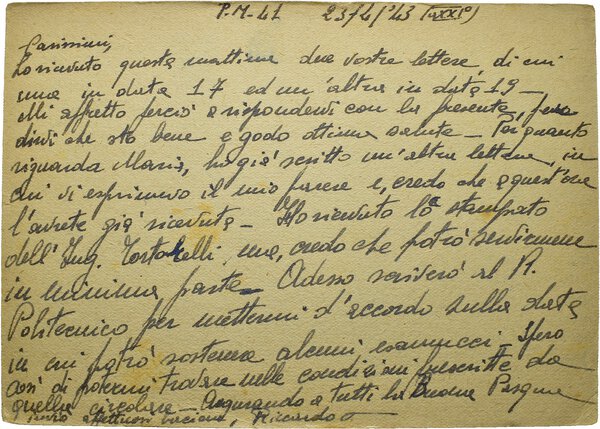 P.M-41 23/4/'43 (XXIº)
Carissimi,
ho ricevuto questa mattina due vostre lettere, di cui
una in data 17 ed un'altra in data 19-
Mi affretto perciò a rispondervi con la presente, per
dirvi che sto bene e godo ottima salute- Per quanto
riguarda Maria, ho già scritto un'altra lettera, in
cui vi esprimevo il mio parere e, credo che a quest'ora
l'avrete già ricevuta- Ho ricevuto lo stampato
dell'Ing. ma, credo che potrò servirmene
in minima parte- Adesso scriverò al R.
Politecnico per mettermi d'accordo sulla data
in cui potrò sostenere alcuni esamucci- Spero
così di potermi trovare nelle condizioni prescritte da
quella circolare- Augurando a tutti la Buona Pasqua
invio affettuosi bacioni, Riccardo